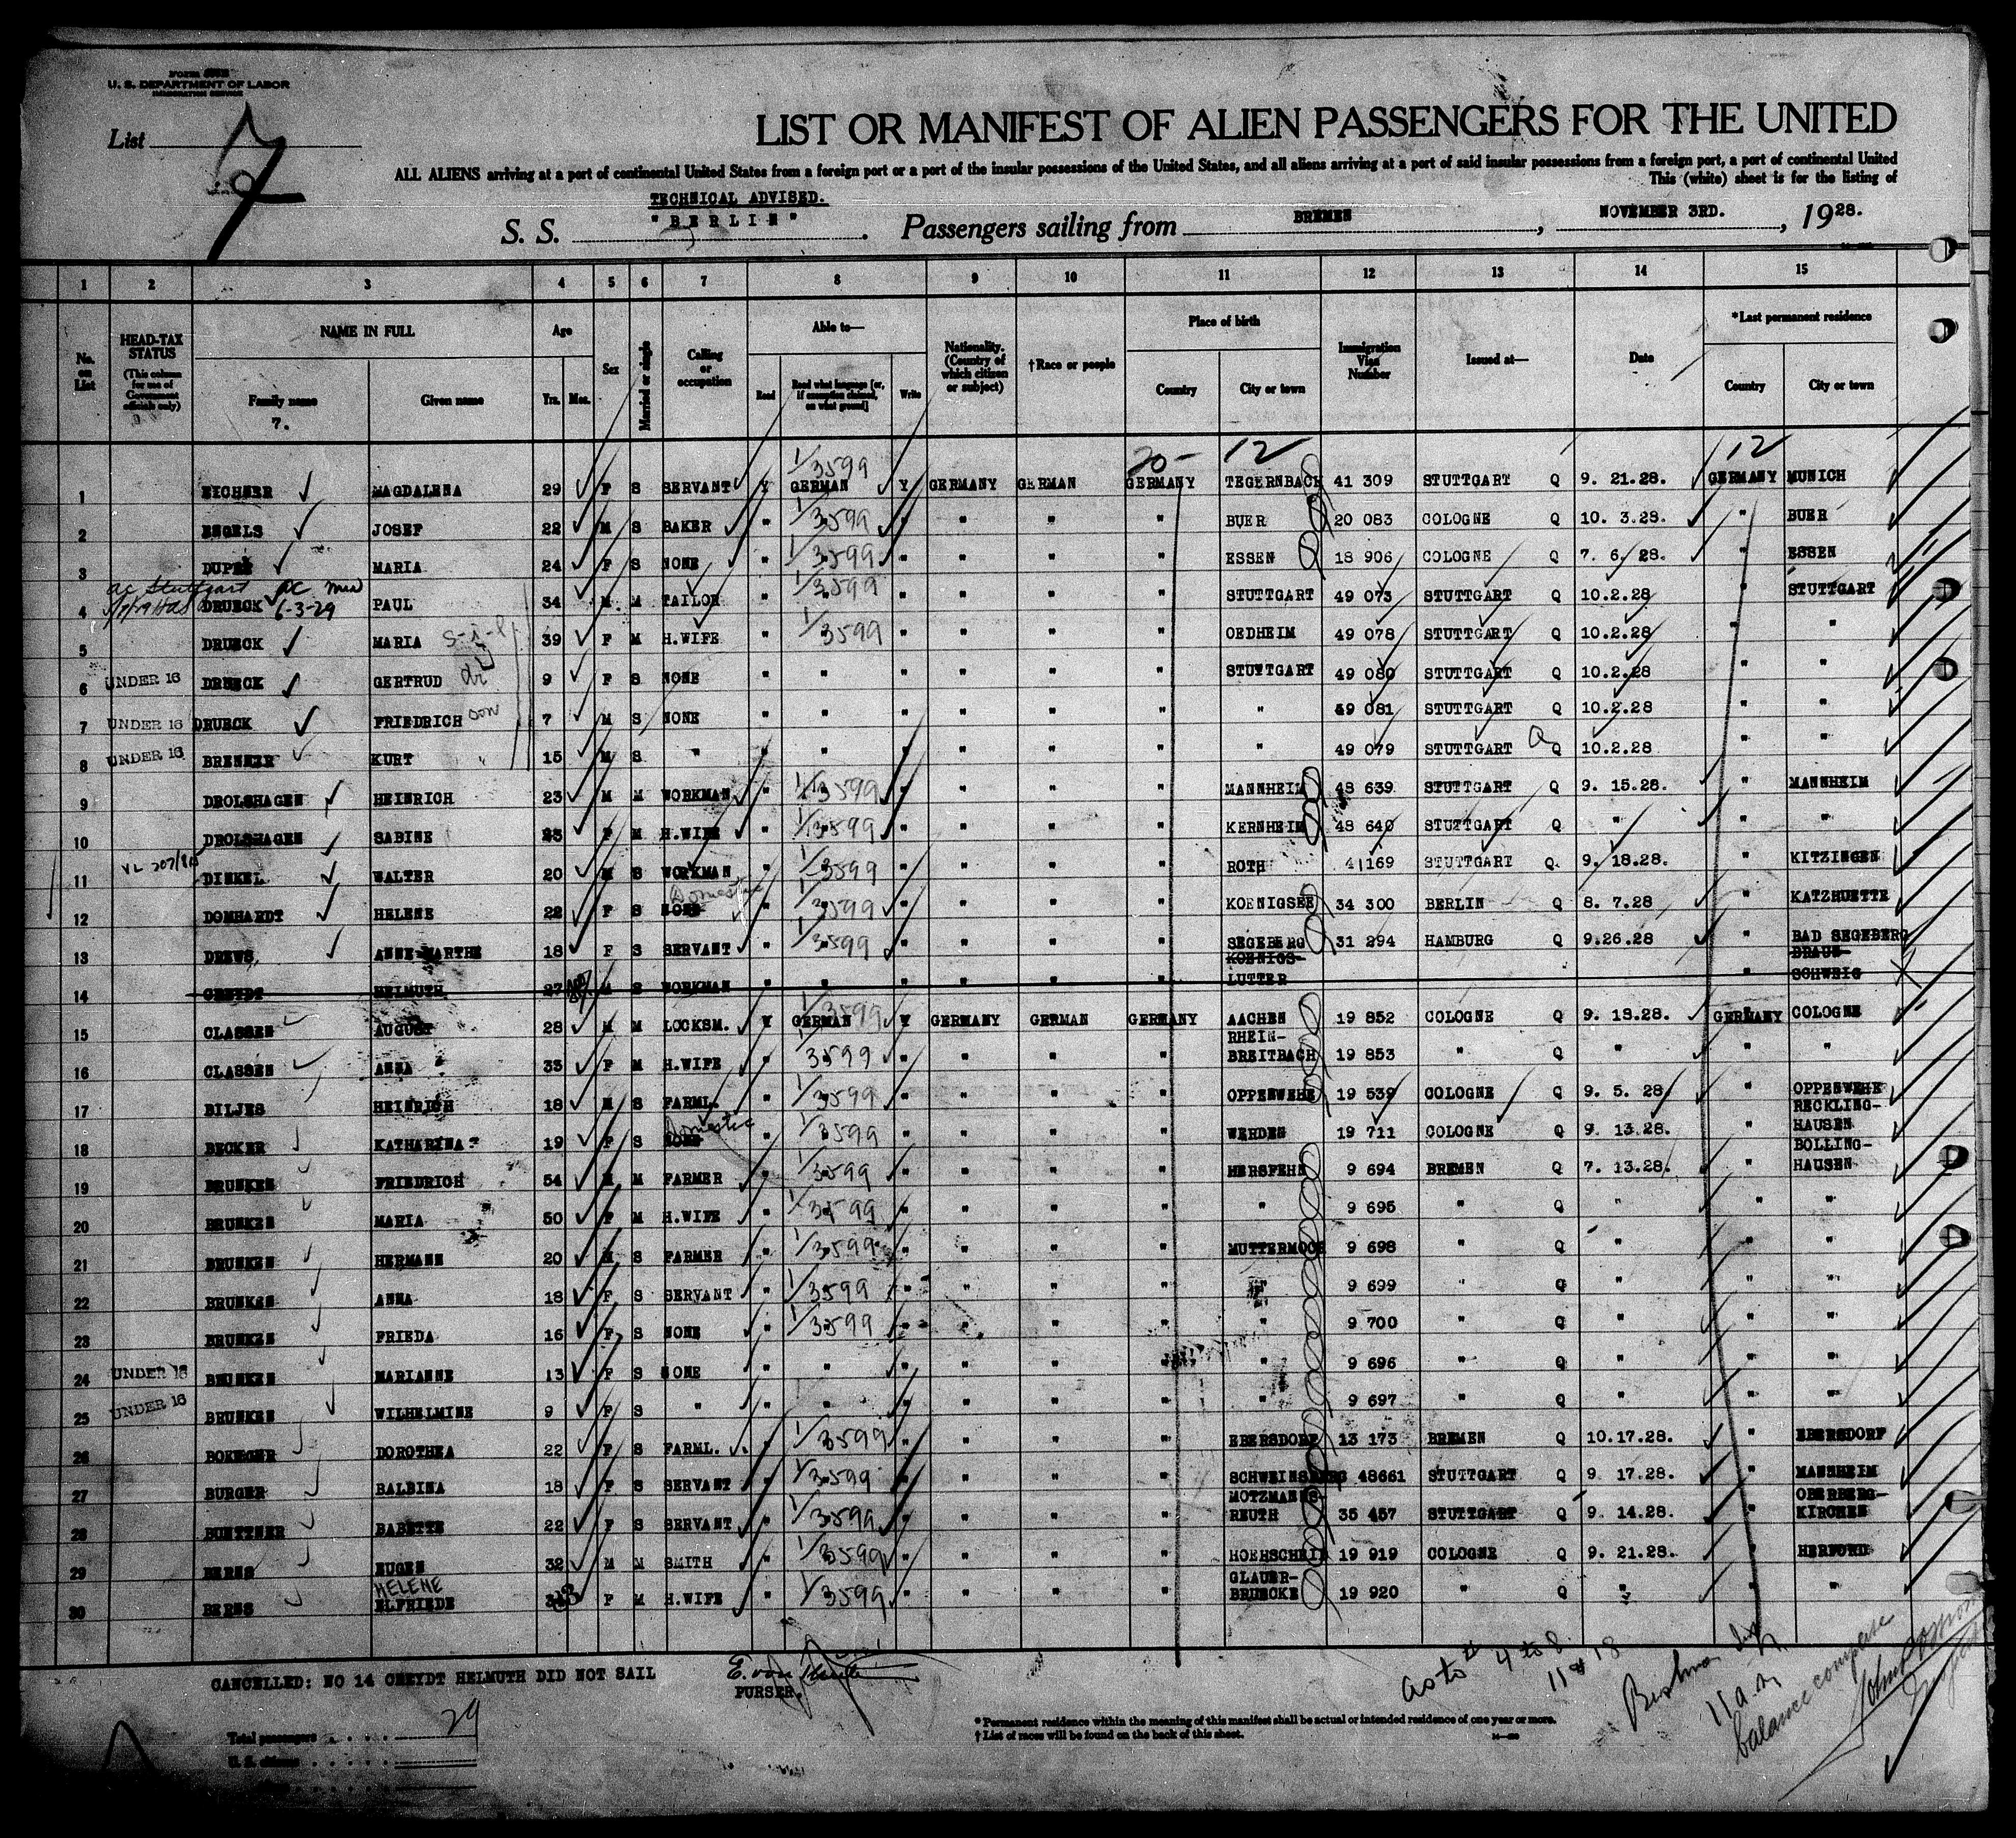 U. S. DEPARTMENT OF LABOR
IMMIGRATION SERVICE
List 7
LIST OR MANIFEST OF ALIEN PASSENGERS FOR THE UNITED
ALL ALIENS arriving at a port of continental United States from a foreign port or a port of the insular possessions of the United States, and all aliens arriving at a port of said insular possessions from a foreign port, a port of continental United
This (white) sheet is for the listing of
TECHNICAL ADVISED.
S. S. "BERLIN". Passengers sailing from BREMEN, NOVEMBER 3RD., 1928.
1 2 3 4 5 6 7 8 9 10 11 12 13 14 15
No. on List
HEAD-TAX STATUS (This column for use of Government officials only)
NAME IN FULL
Family name
7.
Given name
Age
Yrs. Mos.
Sex
Married or single
Calling or occupation
Able to—
Read
Read what language [or, if exemption claimed, on what ground]
Write
Nationality. (Country of which citizen or subject)
†Race or people
Place of birth
Country
City or town
Immigration Visa Number
Issued at—
Date
*Last permanent residence
Country
City or town
20- 12 12
1 EICHNER MAGDALENA 29 F S SERVANT Y 1/3599 GERMAN Y GERMANY GERMAN GERMANY TEGERNBACH 41 309 STUTTGART Q 9. 21.28. GERMANY MUNICH
2 ENGELS JOSEF 22 M S BAKER " 1/3599 " " " " BUER 20 083 COLOGNE Q 10. 3.28. " BUER
3 MARIA 24 F S NONE " 1/3599 " " " " ESSEN 18 906 COLOGNE Q 7. 6. 28. " ESSEN
ac Stuttgart
4 DRUECK 6-3-29 PAUL 34 M M TAILOR " 1/3599 " " " STUTTGART 49 073 STUTTGART Q 10.2.28 " STUTTGART
5 DRUECK MARIA 39 F M H.WIFE " 1/3599 " " " OEDHEIM 49 078 STUTTGART Q 10.2.28 " "
6 UNDER 16 DRUECK GERTRUD 9 F S NONE " " " " " " STUTTGART 49 080 STUTTGART Q 10.2.28 " "
7 UNDER 16 DRUECK FRIEDRICH son 7 M S NONE " " " " " " " 49 081 STUTTGART Q 10.2.28 " "
8 UNDER 16 BRENNER KURT " 15 M S " " " " " " " " 49 079 STUTTGART Q 10.2.28 " "
9 DROLSHAGEN HEINRICH 23 M M WORKMAN " 1/3599 " " " " MANNHEIM 48 639 STUTTGART Q 9. 15.28. " MANNHEIM
10 DROLSHAGEN SABINE 23 F M H.WIFE " 1/3599 " " " " KERNHEIM 48 640 STUTTGART Q " " "
11 DINKEL WALTER 20 M S WORKMAN " 1/3599 " " " " ROTH 41169 STUTTGART Q. 9. 18.28. " KITZINGEN
12 DOMHARDT HELENE 22 F S NONE Domestic " 1/3599 " " " " KOENIGSEE 34 300 BERLIN Q 8. 7.28 " KATZHUETTE
13 DREWS ANNE-MARTHE 18 F S SERVANT " 1/3599 " " " " SEGEBERG 31 294 HAMBURG Q 9.26.28 " BAD SEGEBERG
14 GREYDT HELMUTH 27 M S WORKMAN " " " " " " KOENIGS-LUTTER " BRAUN-SCHWEIG
15 CLASSEN AUGUST 28 M M LOCKSM. Y 1/3599 GERMAN Y GERMANY GERMAN GERMANY AACHEN 19 852 COLOGNE Q 9. 18.28. GERMANY COLOGNE
16 CLASSEN ANNA 33 F M H.WIFE " 1/3599 " " " " RHEIN-BREITBACH 19 853 " Q " " "
17 BILJES HEINRICH 18 M S FARML. " 1/3599 " " " " OPPENWEHE 19 539 COLOGNE Q 9. 5. 28 " OPPENWEHE
18 BECKER KATHARINA 19 F S NONE Domestic " 1/3599 " " " WERDEN 19 711 COLOGNE Q 9. 13.28. " RECKLING-HAUSEN
19 BRUNKEN FRIEDRICH 54 M M FARMER " 1/3599 " " " " HERSFEHN 9 694 BREMEN Q 7. 13.28. " BOLLING-HAUSEN
20 BRUNKEN MARIA 50 F M H.WIFE " 1/3599 " " " " " 9 695 " Q " " "
21 BRUNKEN HERMANN 20 M S FARMER " 1/3599 " " " " MUTTERMOOR 9 698 " Q " " "
22 BRUNKEN ANNA 18 F S SERVANT " 1/3599 " " " " " 9 699 " Q " " "
23 BRUNKEN FRIEDA 16 F S NONE " 1/3599 " " " " " 9 700 " Q " " "
24 UNDER 16 BRUNKEN MARIANNE 13 F S NONE " " " " " " " 9 696 " Q " " "
25 UNDER 16 BRUNKEN WILHELMINE 9 F S " " " " " " " " 9 697 " Q " " "
26 DOROTHEA 22 F S FARML. " 1/3599 " " " " EBERSDORF 13 173 BREMEN Q 10.17.28. " EBERSDORF
27 BURGER BALBINA 18 F S SERVANT " 1/3599 " " " " 48661 STUTTGART Q 9 17.28. " MANNHEIM
28 BUETTNER BABETTE 22 F S SERVANT " 1/3599 " " " " MOTZMANNS-REUTH 35 457 STUTTGART Q 9. 14.28. " OBERBERG-KIRCHEN
29 BERNS EUGEN 32 M M SMITH " 1/3599 " " " " HOEHSCHEID 19 919 COLOGNE Q 9. 21.28. " HERFORD
30 BERNS HELENE ELFRIEDE F M H.WIFE " 1/3599 " " " " GLAUER-BRUECKE 19 920 " Q " " "
CANCELLED: NO 14 GREYDT HELMUTH DID NOT SAIL
PURSER.
as to # 4 to 8
11 & 18
balance compare
Total passengers 29
U. S. citizens
*Permanent residence within the meaning of this manifest shall be actual or intended residence of one year or more.
†List of races will be found on the back of this sheet.